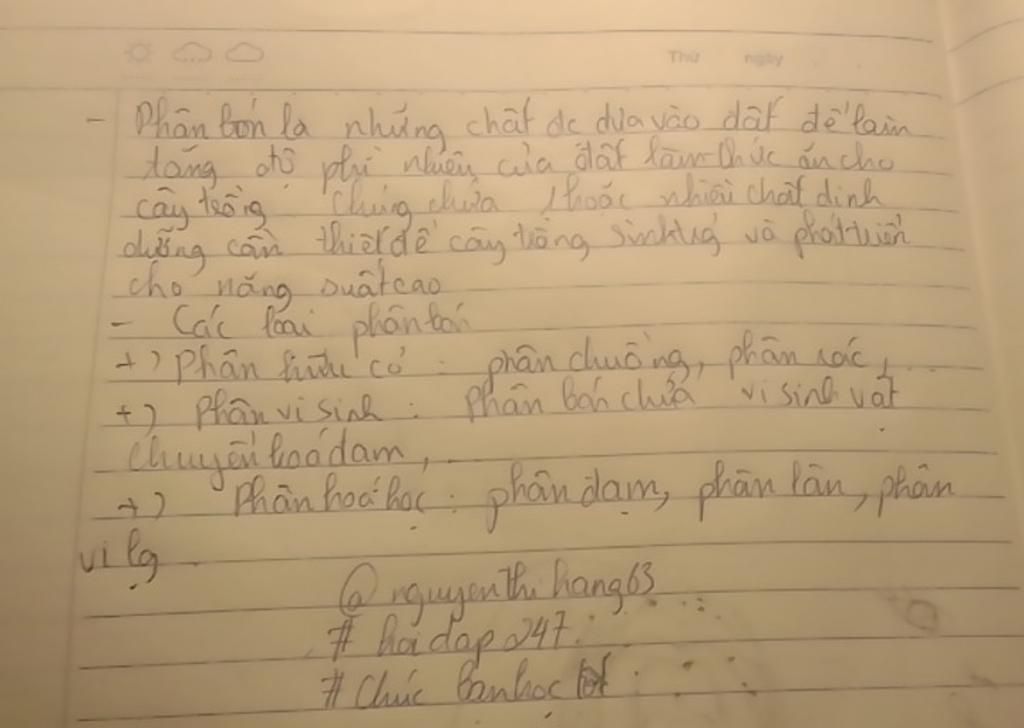 Thứ ngày
- Phân bón là những chất đc đưa vào đất để làm
tăng độ phì nhiêu của đất làm thức ăn cho
cây trồng Chúng chứa 1 hoặc nhiều chất dinh
dưỡng cần thiết để cây trồng sinh trg và phát triển
cho năng suất cao
- Các loại phân bón
+) Phân hữu cơ : phân chuồng, phân rác, ...
+) Phân vi sinh : Phân bón chứa vi sinh vật
chuyển hoá đạm, ...
+) Phân hoá học : phân đạm, phân lân, phân
vi lg
@nguyenthihang63
# hoidap247
# Chúc bạn học tốt